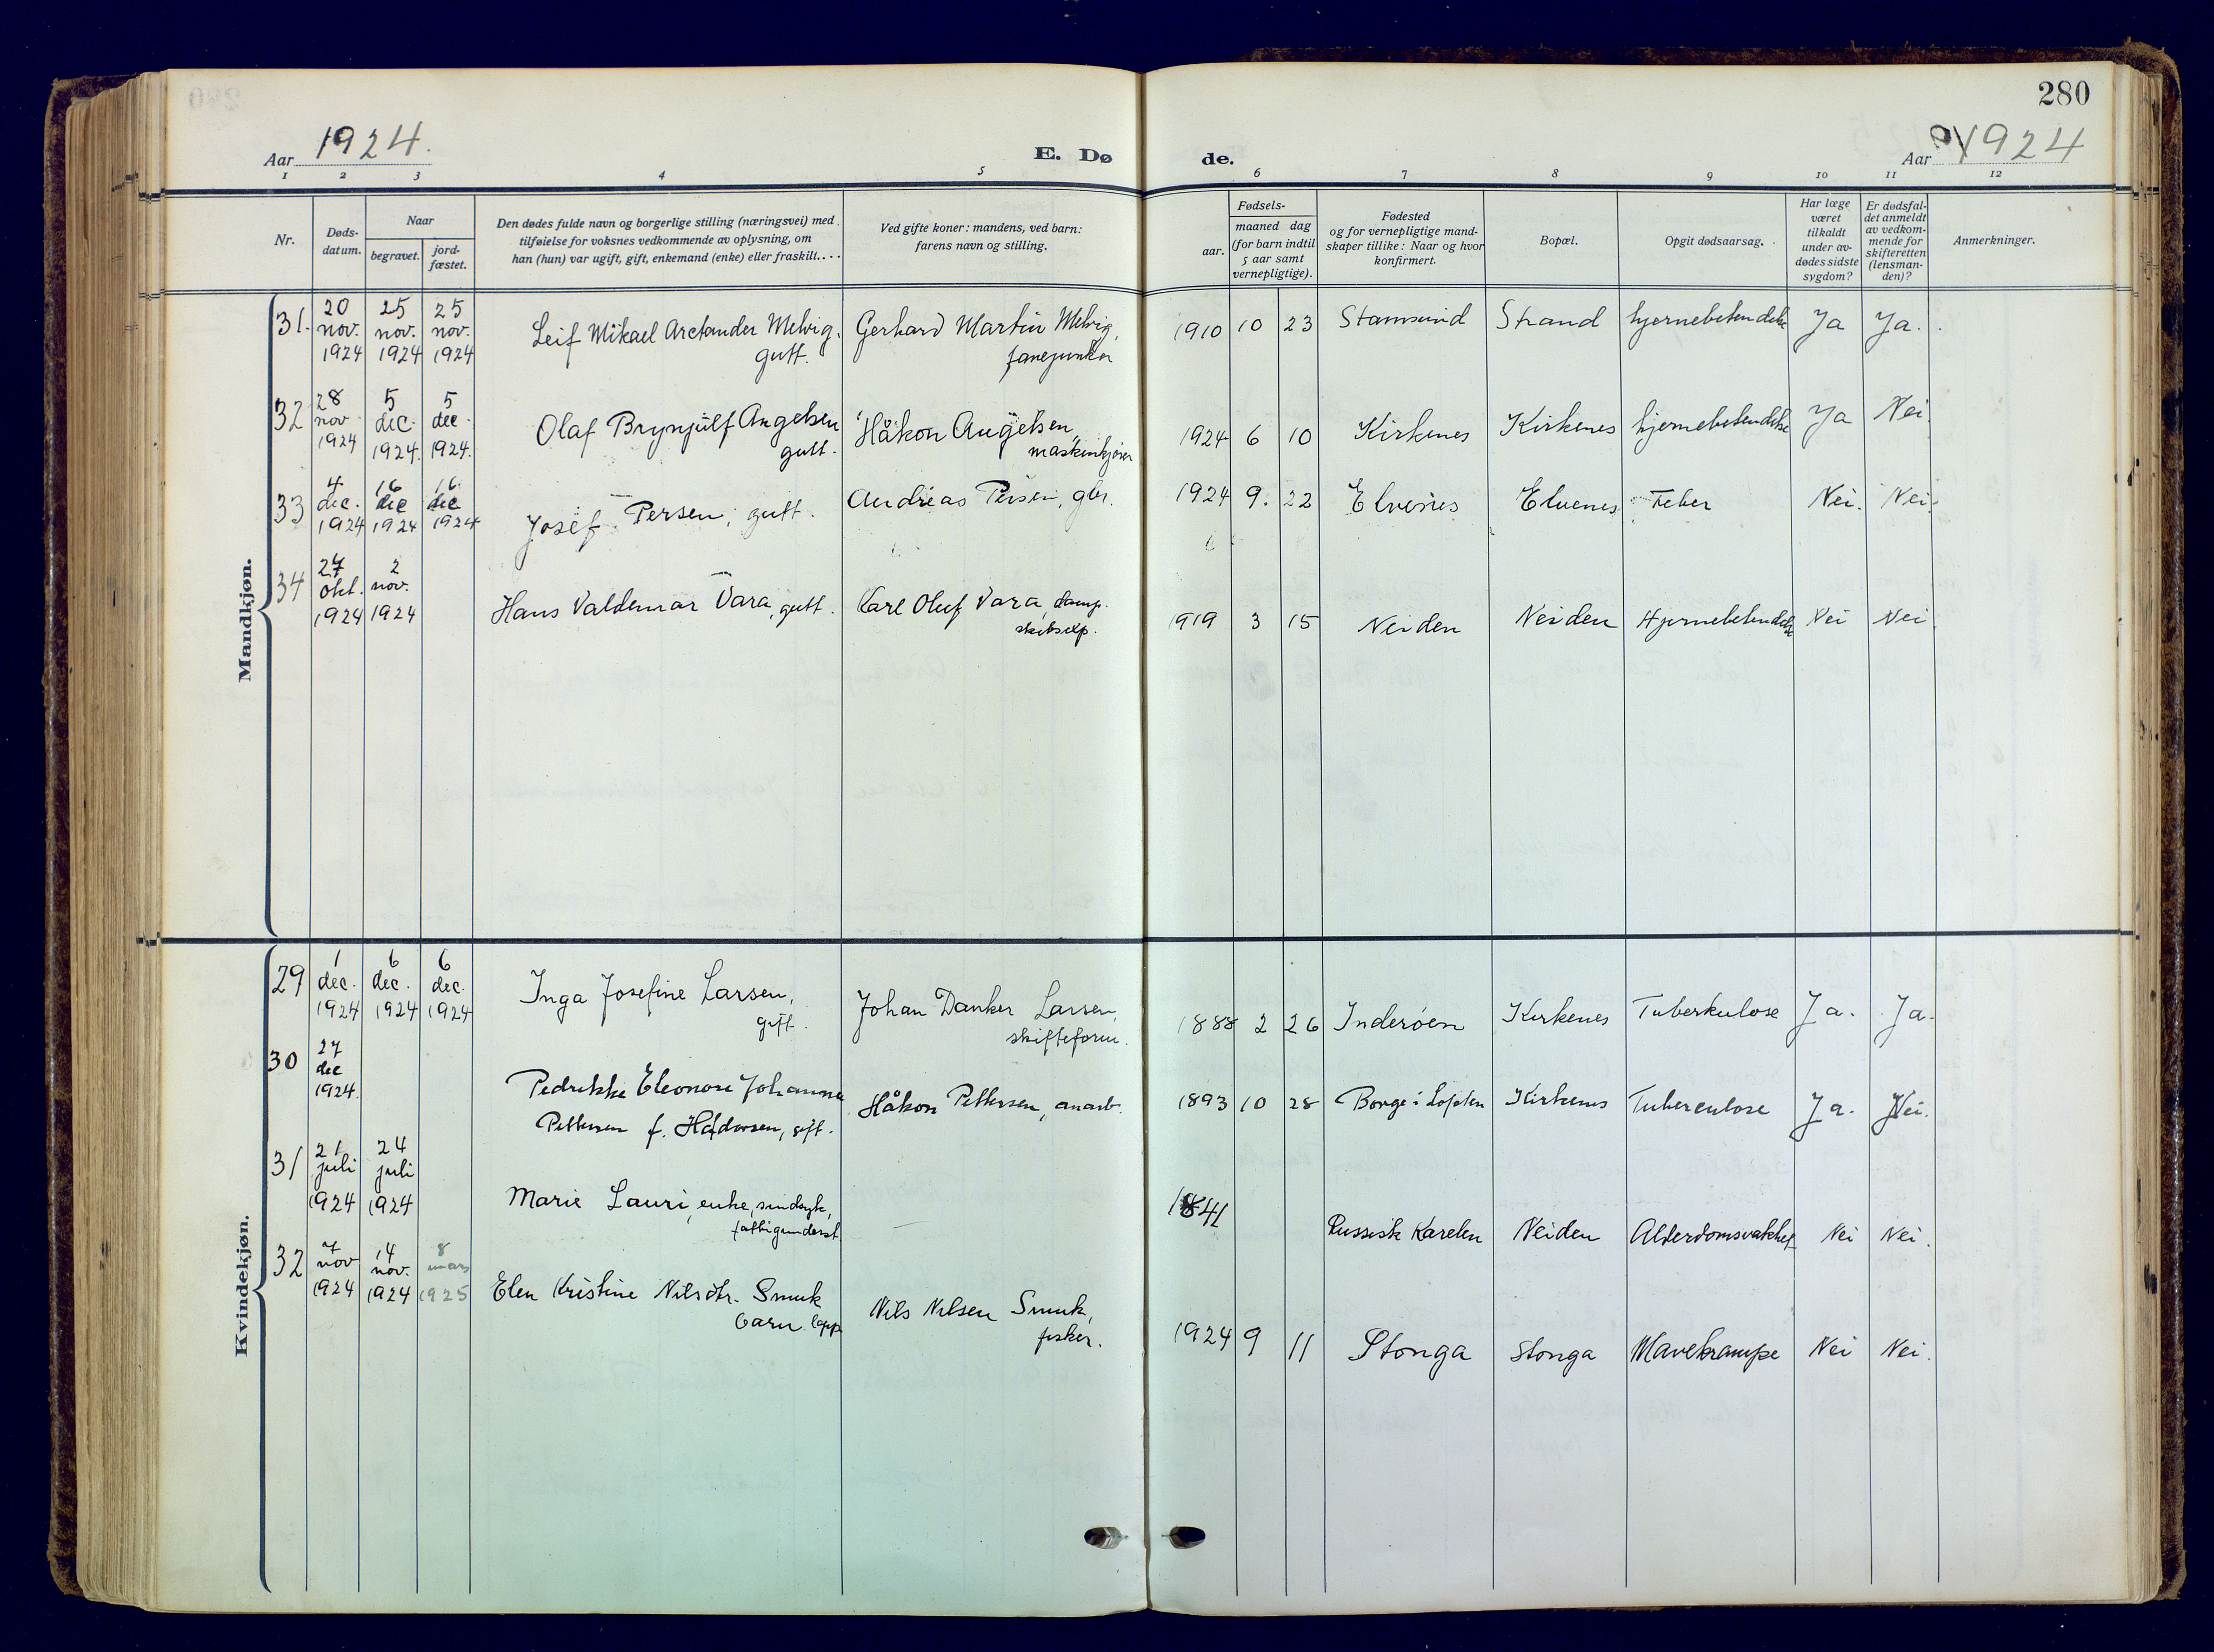 280
Aar 1924.
E. Dø
de.
Aar 1924
1 2 3 4 5 6 7 8 9 10 11 12
Nr.
Døds-
datum.
Naar
begravet.
jord-
fæstet.
Den dødes fulde navn og borgerlige stilling (næringsvei) med
tilføielse for voksnes vedkommende av oplysning, om
han (hun) var ugift, gift, enkemand (enke) eller fraskilt....
Ved gifte koner: mandens, ved barn:
farens navn og stilling.
Fødsels-
aar.
maaned dag
(for barn indtil
5 aar samt
vernepligtige).
Fødested
og for vernepligtige mand-
skaper tillike: Naar og hvor
konfirmert.
Bopæl.
Opgit dødsaarsag.
Har læge
været
tilkaldt
under av-
dødes sidste
sygdom?
Er dødsfal-
det anmeldt
av vedkom-
mende for
skifteretten
(lensman-
den)?
Anmerkninger.
Mandkjøn.
31. 20 nov. 1924 25 nov. 1924 25 nov. 1924 Leif Mikael Arctander Melvig, Gerhard Martin Melvig, 1910 10 23 Stamsund Strand hjernebetendelse Ja Ja.
gutt. fanejunker
32 28 nov 1924 5 dec. 1924. 5 dec. 1924. Olaf Brynjulf Angelsen Håkon Angelsen, 1924 6 10 Kirkenes Kirkenes hjernebetendelse Ja Nei
gutt. maskinkjører
33 4 dec. 1924 16 dec 1924 16 dec 1924 Josef Persen, gutt. Andreas Persen, gbr. 1924 9. 22 Elvenes Elvenes Feber Nei. Nei.
34 27 okt. 1924 2 nov. 1924 Hans Valdemar Vara, gutt. Karl Oluf Vara, damp. 1919 3 15 Neiden Neiden Hjernebetendelse Nei Nei
skibsexp.
Kvindekjøn.
29 1 dec. 1924 6 dec. 1924 6 dec. 1924 Inga Josefine Larsen, Johan Danker Larsen, 1888 2 26 Inderøen Kirkenes Tuberkulose Ja. Ja.
gift. skifteform.
30 27 dec 1924. Pedrikke Eleonore Johanna Håkon Pettersen, anarb. 1893 10 28 Borge i Lofoten Kirkenes Tuberculose Ja. Nei.
Pettersen f. gift.
31 21 juli 1924 24 juli 1924 Marie Lauri, enke, sindsyk, — 1841 Russisk Karelen Neiden Alderdomsvakhet Nei Nei.
fattigunderst.
32 7 nov 1924 14 nov. 1924 8 mars 1925 Elen Kristine Nilsdtr. Smuk Nils Nilsen Smuk, 1924 9 11 Stonga Stonga Mavekrampe Nei Nei.
barn. lapp fisker.